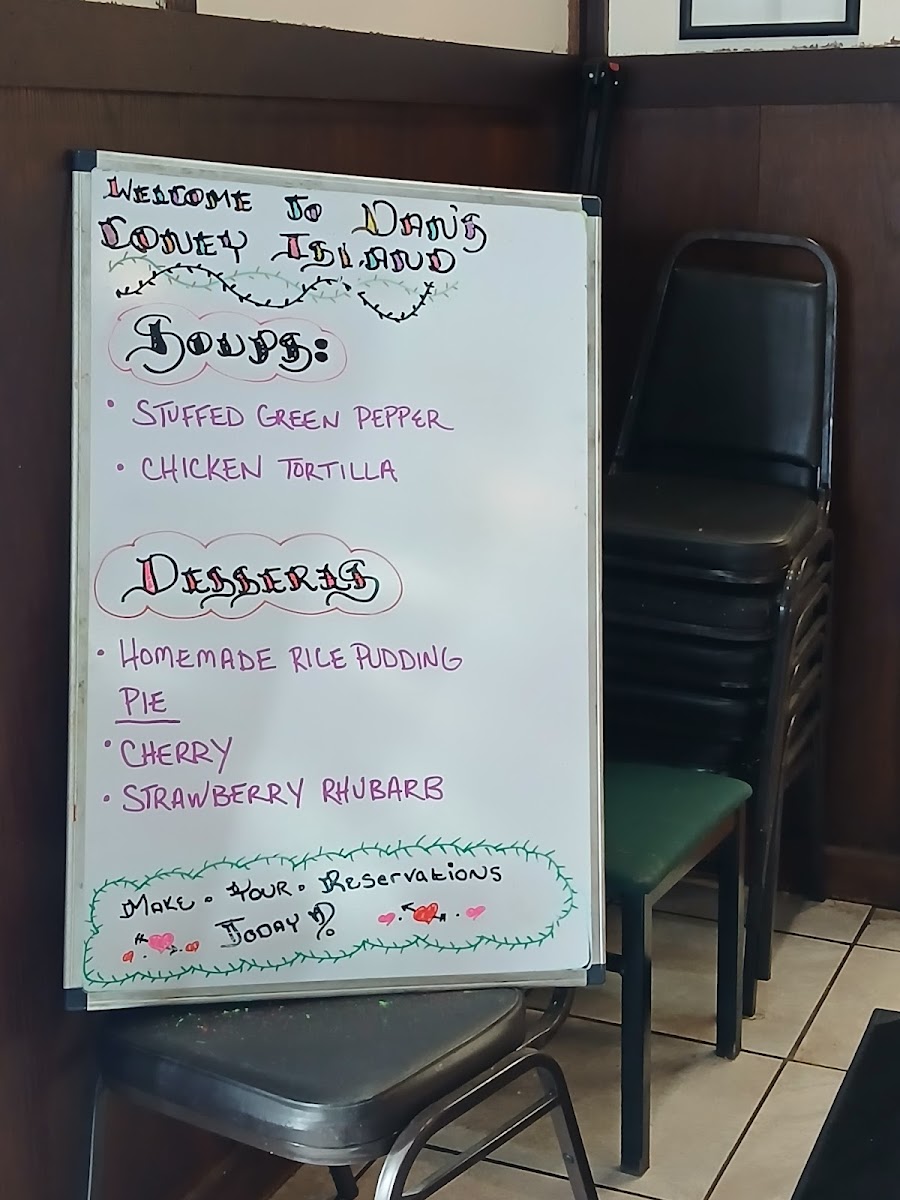 WELCOME TO DAN'S
CONEY ISLAND
SOUPS:
• STUFFED GREEN PEPPER
• CHICKEN TORTILLA
DESSERTS
• HOMEMADE RICE PUDDING
PIE
• CHERRY
• STRAWBERRY RHUBARB
MAKE • YOUR • RESERVATIONS
TODAY!